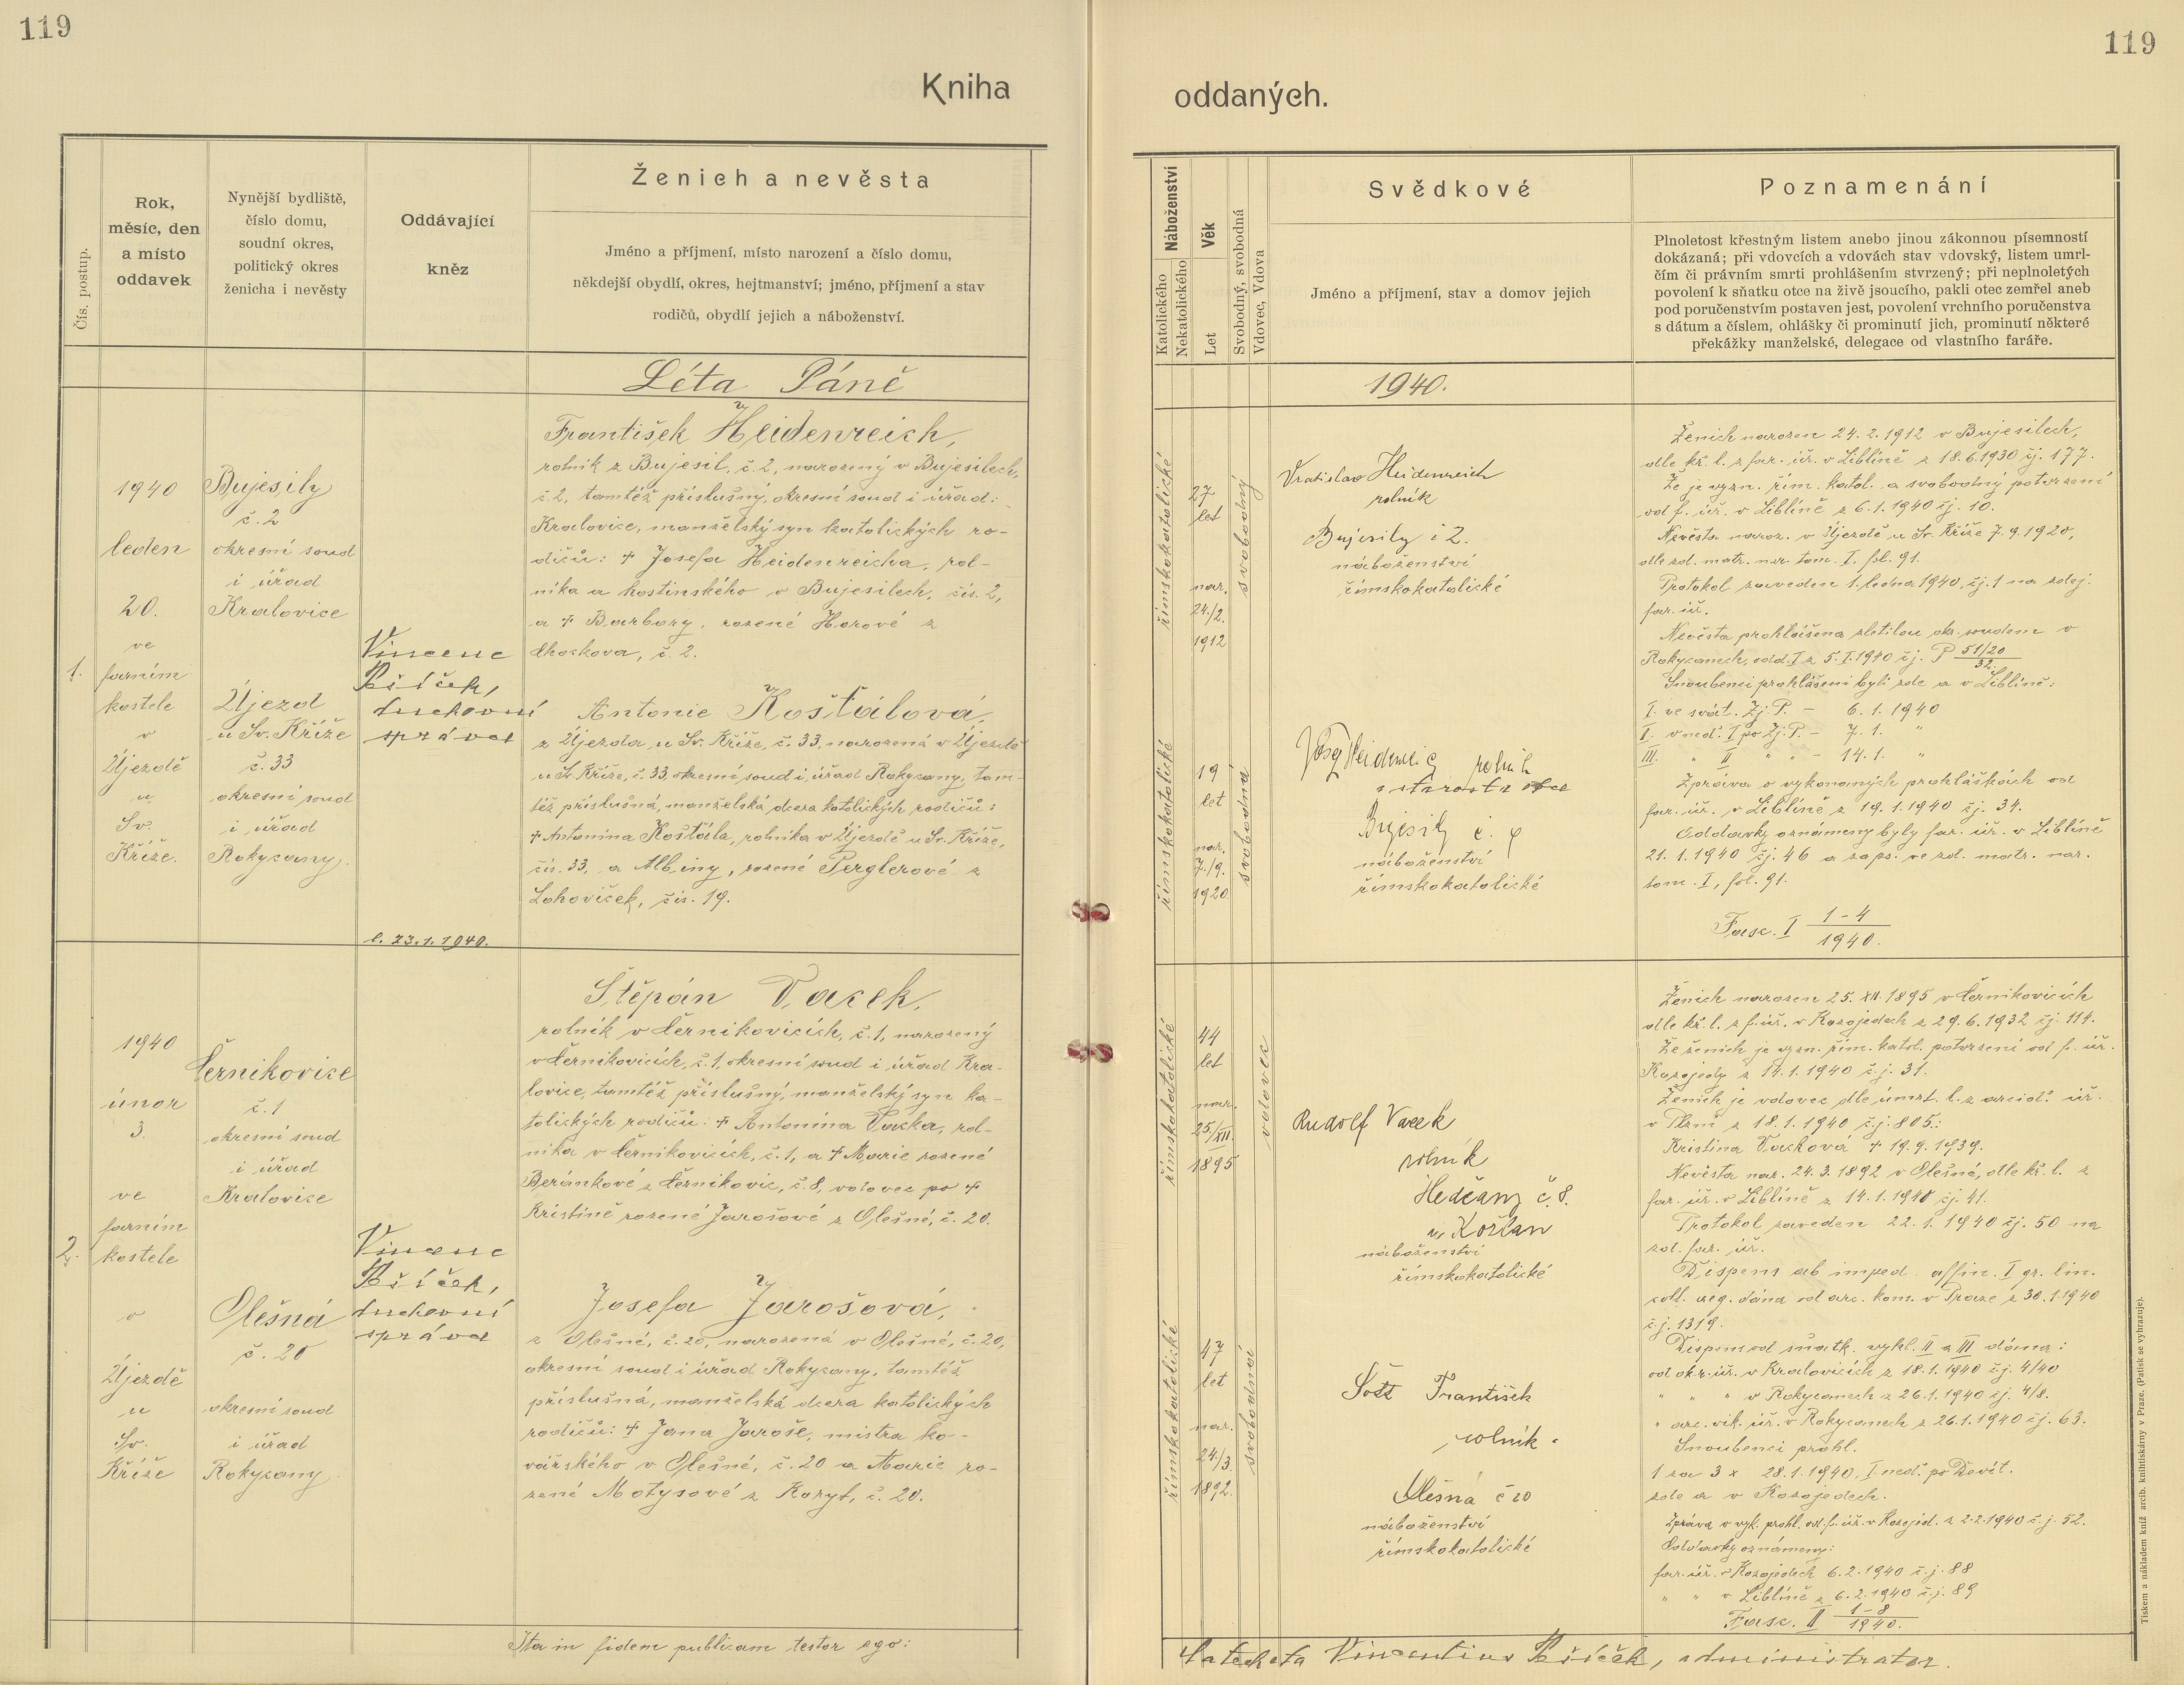 119
119
Kniha
oddaných.
Čís. postup.
Rok,
měsíc, den
a místo
oddavek
Nynější bydliště,
číslo domu,
soudní okres,
politický okres
ženicha i nevěsty
Oddávající
kněz
Ženich a nevěsta
Jméno a příjmení, místo narození a číslo domu,
někdejší obydlí, okres, hejtmanství; jméno, příjmení a stav
rodičů, obydlí jejich a náboženství.
Náboženství
Katolického
Nekatolického
Věk
Let
Svobodný, svobodná
Vdovec, Vdova
Svědkové
Jméno a příjmení, stav a domov jejich
Poznamenání
Plnoletost křestným listem anebo jinou zákonnou písemností
dokázaná; při vdovcích a vdovách stav vdovský, listem umrl-
čím či právním smrti prohlášením stvrzený; při neplnoletých
povolení k sňatku otce na živě jsoucího, pakli otec zemřel aneb
pod poručenstvím postaven jest, povolení vrchního poručenstva
s dátum a číslem, ohlášky či prominutí jich, prominutí některé
překážky manželské, delegace od vlastního faráře.
Léta Páně
1940.
1.
1940
leden
20.
ve
farním
kostele
v
Újezdě
u
Sv.
Kříže.
Bujesily
č. 2
okresní soud
i úřad
Kralovice
Újezd
u Sv. Kříže
č. 33
okresní soud
i úřad
Rokycany.
Vincenc
Pšíček,
duchovní
správce
č. 23.1.1940.
František Heidenreich,
rolník z Bujesil, č. 2, narozený v Bujesilech,
č. 2, tamtéž příslušný, okresní soud i úřad:
Kralovice, manželský syn katolických ro-
dičů: + Josefa Heidenreicha, rol-
níka a hostinského v Bujesilech, čís. 2,
a + Barbory, rozené Horové z
Chockova, č. 2.
Antonie Košťálová,
z Újezda u Sv. Kříže, č. 33, narozená v Újezdě
u Sv. Kříže, č. 33, okresní soud i úřad Rokycany, tam-
též příslušná, manželská dcera katolických rodičů:
+ Antonína Košťála, rolníka v Újezdě u Sv. Kříže,
čís. 33, a Albiny, rozené Perglerové z
Lohoviček, čís. 19.
římskokatolické
27
let
nar.
24./2.
1912
svobodný
římskokatolické
19
let
nar.
7./9.
1920
svobodná
Vratislav Heidenreich
rolník
Bujesily č 2.
náboženství
římskokatolické
Josef Heidenreich rolník
a starosta obce
Bujesily č. 4
náboženství
římskokatolické
Ženich narozen 24. 2. 1912 v Bujesilech,
dle kř. l. z far. úř. v Liblíně z 18.6.1930 čj. 177.
Že je vyzn. řím. katol. a svobodný potvrzení
od f. úř. v Liblíně z 6.1.1940 čj. 10.
Nevěsta naroz. v Újezdě u Sv. Kříže 7. 9. 1920,
dle zd. matr. nar. tom. I. fol. 91.
Protokol zaveden 1. ledna 1940, čj. 1 na zdej.
far. úř.
Nevěsta prohlášena zletilou okr. soudem v
Rokycanech, odd. I z 5. I. 1940 čj. P 51/20
32.
Snoubenci prohlášeni byli zde a v Liblíně:
I. ve svát. Zj. P. – 6. 1. 1940
II. v ned. I po Zj. P. – 7. 1. "
III. " II " " – 14. 1. "
Zpráva o vykonaných prohláškách od
far. úř. v Liblíně z 19. 1. 1940 čj. 34.
Oddavky oznámeny byly far. úř. v Liblíně
21. 1. 1940 čj. 46 a zaps. ve zd. matr. nar.
tom. I, fol. 91.
Fasc. I 1-4
1940.
2.
1940
únor
3.
ve
farním
kostele
v
Újezdě
u
Sv.
Kříže
Černíkovice
č. 1
okresní soud
i úřad
Kralovice
Olešná
č. 20
okresní soud
i úřad
Rokycany.
Vincenc
Pšíček,
duchovní
správce
Štěpán Vacek,
rolník v Černíkovicích, č. 1, narozený
v Černíkovicích, č. 1, okresní soud i úřad Kra-
lovice, tamtéž příslušný, manželský syn ka-
tolických rodičů: + Antonína Vacka, rol-
níka v Černíkovicích, č. 1, a + Marie rozené
Beránkové z Černíkovic, č. 8, vdovec po +
Kristině rozené Jarošové z Olešné, č. 20.
Josefa Jarošová,
z Olešné, č. 20, narozená v Olešné, č. 20,
okresní soud i úřad Rokycany, tamtéž
příslušná, manželská dcera katolických
rodičů: + Jana Jaroše, mistra ko-
vářského v Olešné, č. 20 a Marie ro-
zené Motysové z Koryt, č. 20.
římskokatolické
44
let
nar.
25./XII.
1895
vdovec
římskokatolické
47
let
nar.
24./3
1892.
svobodná
Rudolf Vacek
rolník
Hedčany č. 8.
u Kožlan
náboženství
římskokatolické
František
rolník.
Olešná č 20
náboženství
římskokatolické
Ženich narozen 25. XII. 1895 v Černíkovicích
dle kř. l. z f. úř. v Kozojedech z 29. 6. 1932 čj. 114.
Že ženich je vyzn. řím. katol. potvrzení od f. úř.
Kozojedy z 14. 1. 1940 č. j. 31.
Ženich je vdovec dle úmrt. l. z arcid. úř.
v Plzni z 18. 1. 1940 č.j. 805.:
Kristina Vacková + 19. 9. 1939.
Nevěsta nar. 24. 3. 1892 v Olešné, dle kř. l. z
far. úř. v Liblíně z 14. 1. 1940 čj. 41.
Protokol zaveden 22. 1. 1940 čj. 50 na
zd. far. úř.
Dispens ab imped. affin. I gr. lin.
coll. aeq. dána od arc. kom. v Praze z 30. 1. 1940
č. j. 1319.
Dispens od sňatk. vyhl. II a III dána:
od okr. úř. v Kralovicích z 18. 1. 1940 č.j. 4/40
" " " v Rokycanech z 26. 1. 1940 čj. 4/8.
" arc. vik. úř. v Rokycanech z 26. 1. 1940 čj. 63.
Snoubenci prohl.
1 za 3 x 28. 1. 1940, I. ned. po Devít.
zde a v Kozojedech.
Zpráva o vyk. prohl. od f. úř. v Kozojed. z 2.2.1940 č. j. 52.
Oddavky oznámeny:
far. úř. v Kozojedech 6. 2. 1940 č. j. 88
" " v Liblíně z 6. 2. 1940 č. j. 89
Fasc. II 1-8
1940.
Ita in fidem publicam testor ego:
Catecheta Vincentius Pšíček, administrator.
Tiskem a nákladem kníž. arcib. knihtiskárny v Praze. (Patisk se vyhrazuje).